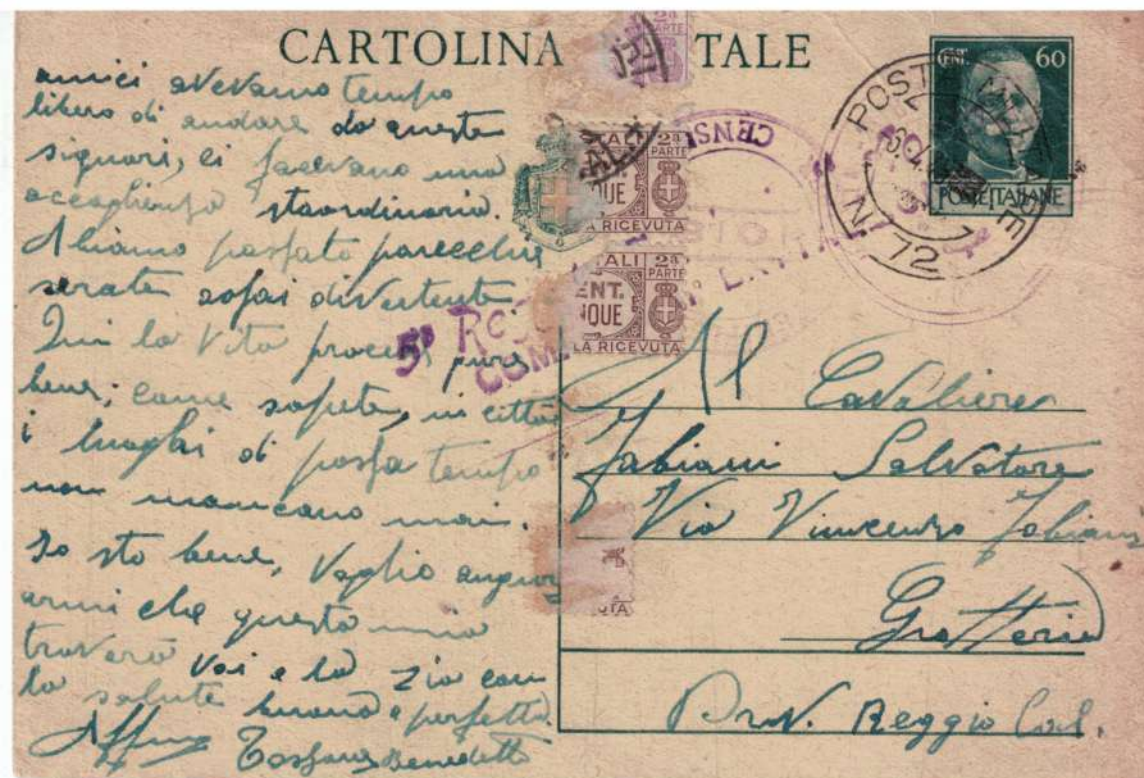 CARTOLINA TALE
2ª PARTE
CENT. 60
POSTE ITALIANE
POSTA MILITARE
N. 72
CENS
TALI 2ª PARTE
QUE
LA RICEVUTA
TALI 2ª PARTE
ENT. NQUE
LA RICEVUTA
5º
amici avevamo tempo
libero di andare da queste
signori, ci facevano una
accoglienza staordinaria.
Abiamo passato parecchie
serate assai divertente
Qui la vita procede pure
bene; come sapete, in città
i luoghi di passa tempo
non mancano mai.
Io sto bene, Voglio augur
armi che questa mia
troverà Voi e la zia con
la salute buona e perfetta.
Benedetto
Al Cavaliere
Fabiani Salvatore
Via Vincenzo Fabiani
Grotteria
Prov. Reggio Cal.